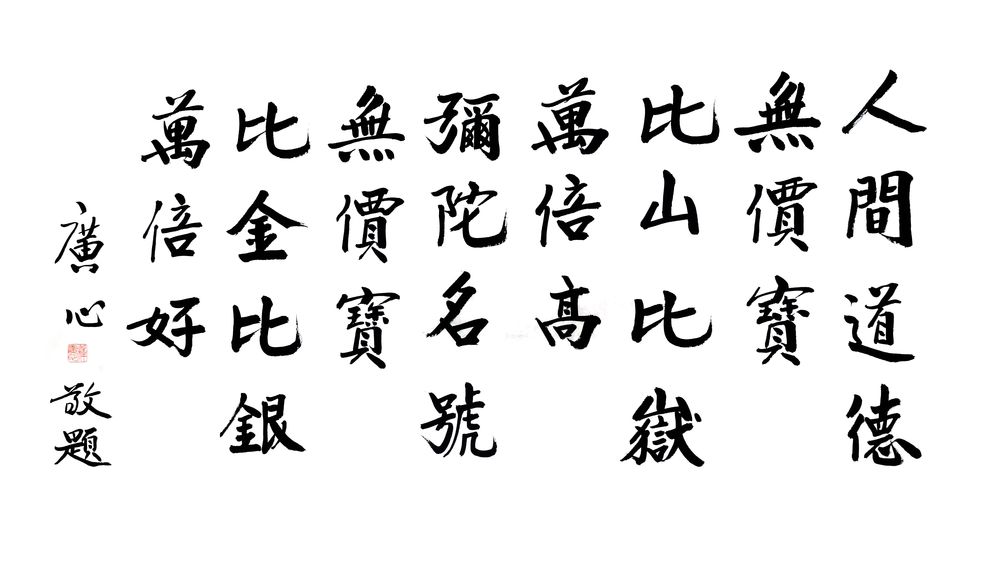 人間道德
無價寶
比山比嶽
萬倍高
彌陀名號
無價寶
比金比銀
萬倍好
廣心敬題